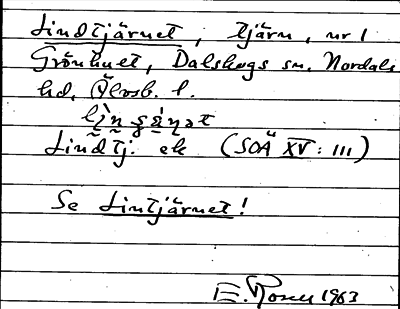 Lindtjärnet, tjärn, nr 1
Grönhuet, Dalskogs sn. Nordals
hd, Älvsb. l.
Lindtj. ek (SOÄ XV: III)
Se Lintjärnet!
E. Rosen 1963